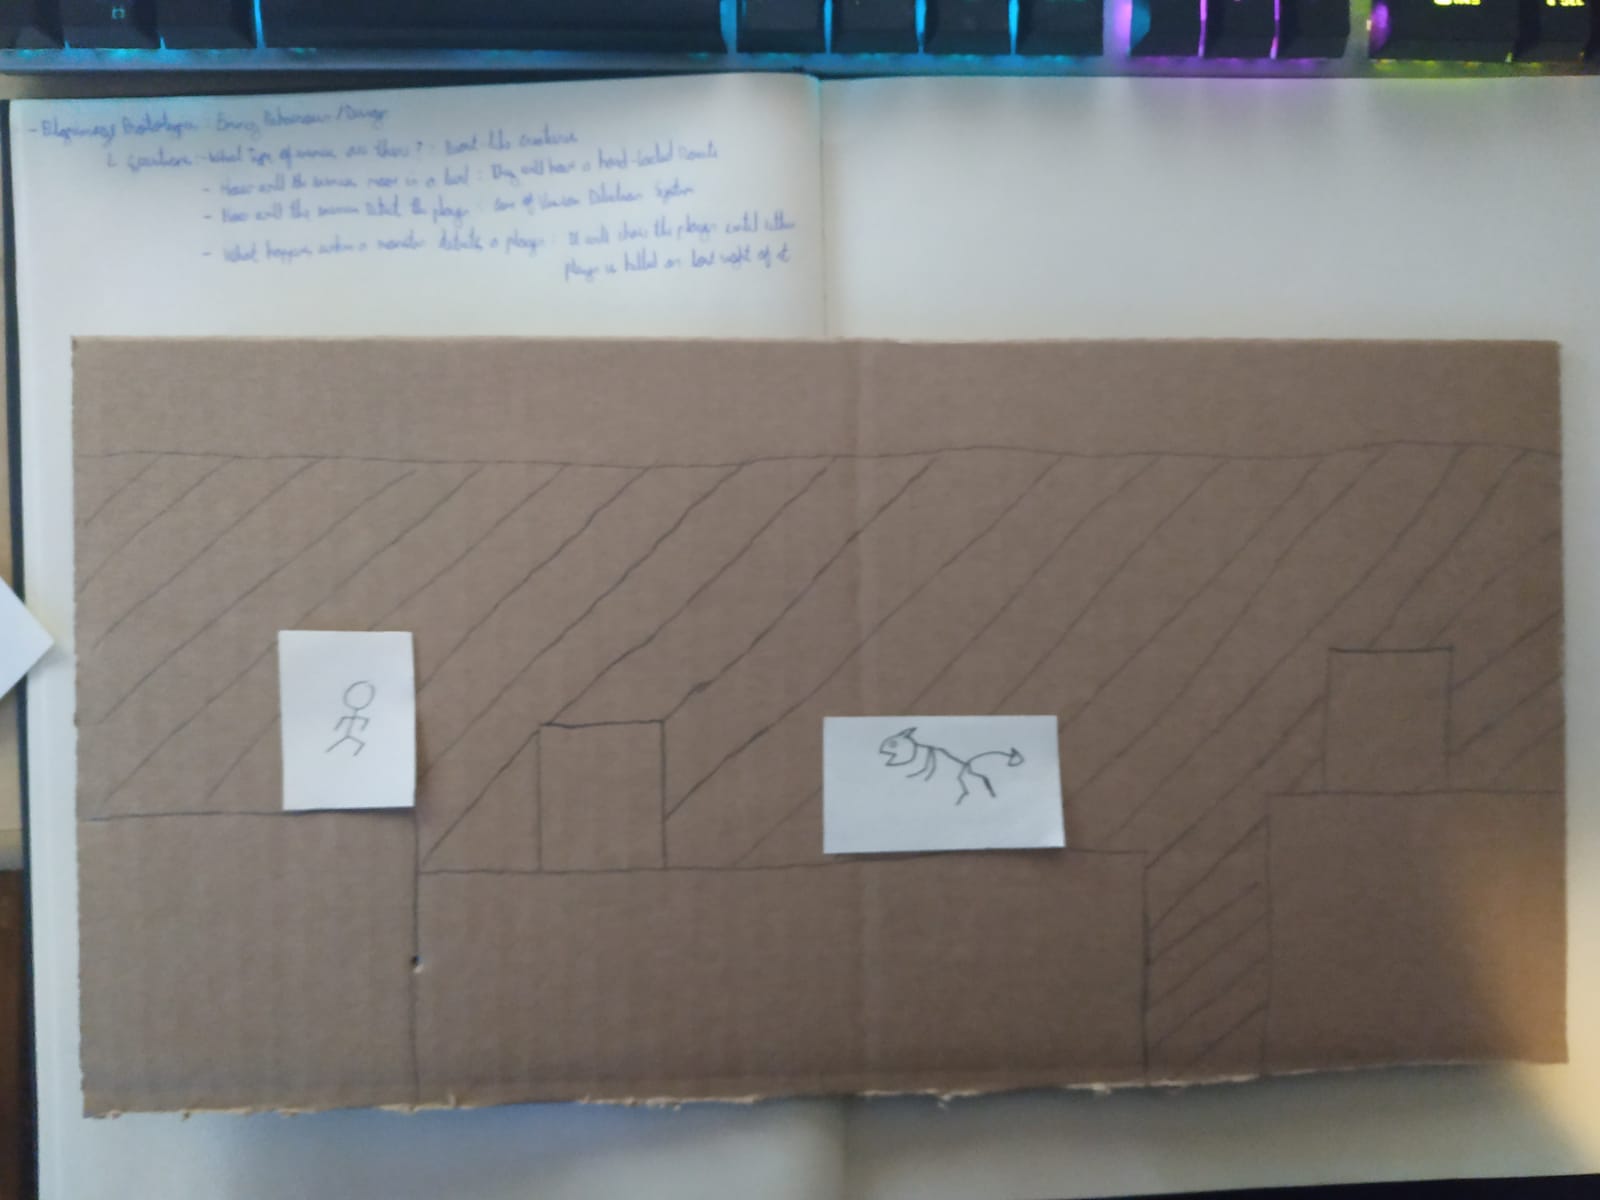 - Pilgrimage Prototype : Enemy Behaviour/Design
Questions : - What type of enemies are there? : Beast-like Creatures
- How will the enemies move in a level : They will have a hard-coded Route
- How will the enemies detect the player : Cone of Vision Detection System
- What happens when a monster detects a player : It will chase the player until either
player is killed or lost sight of it